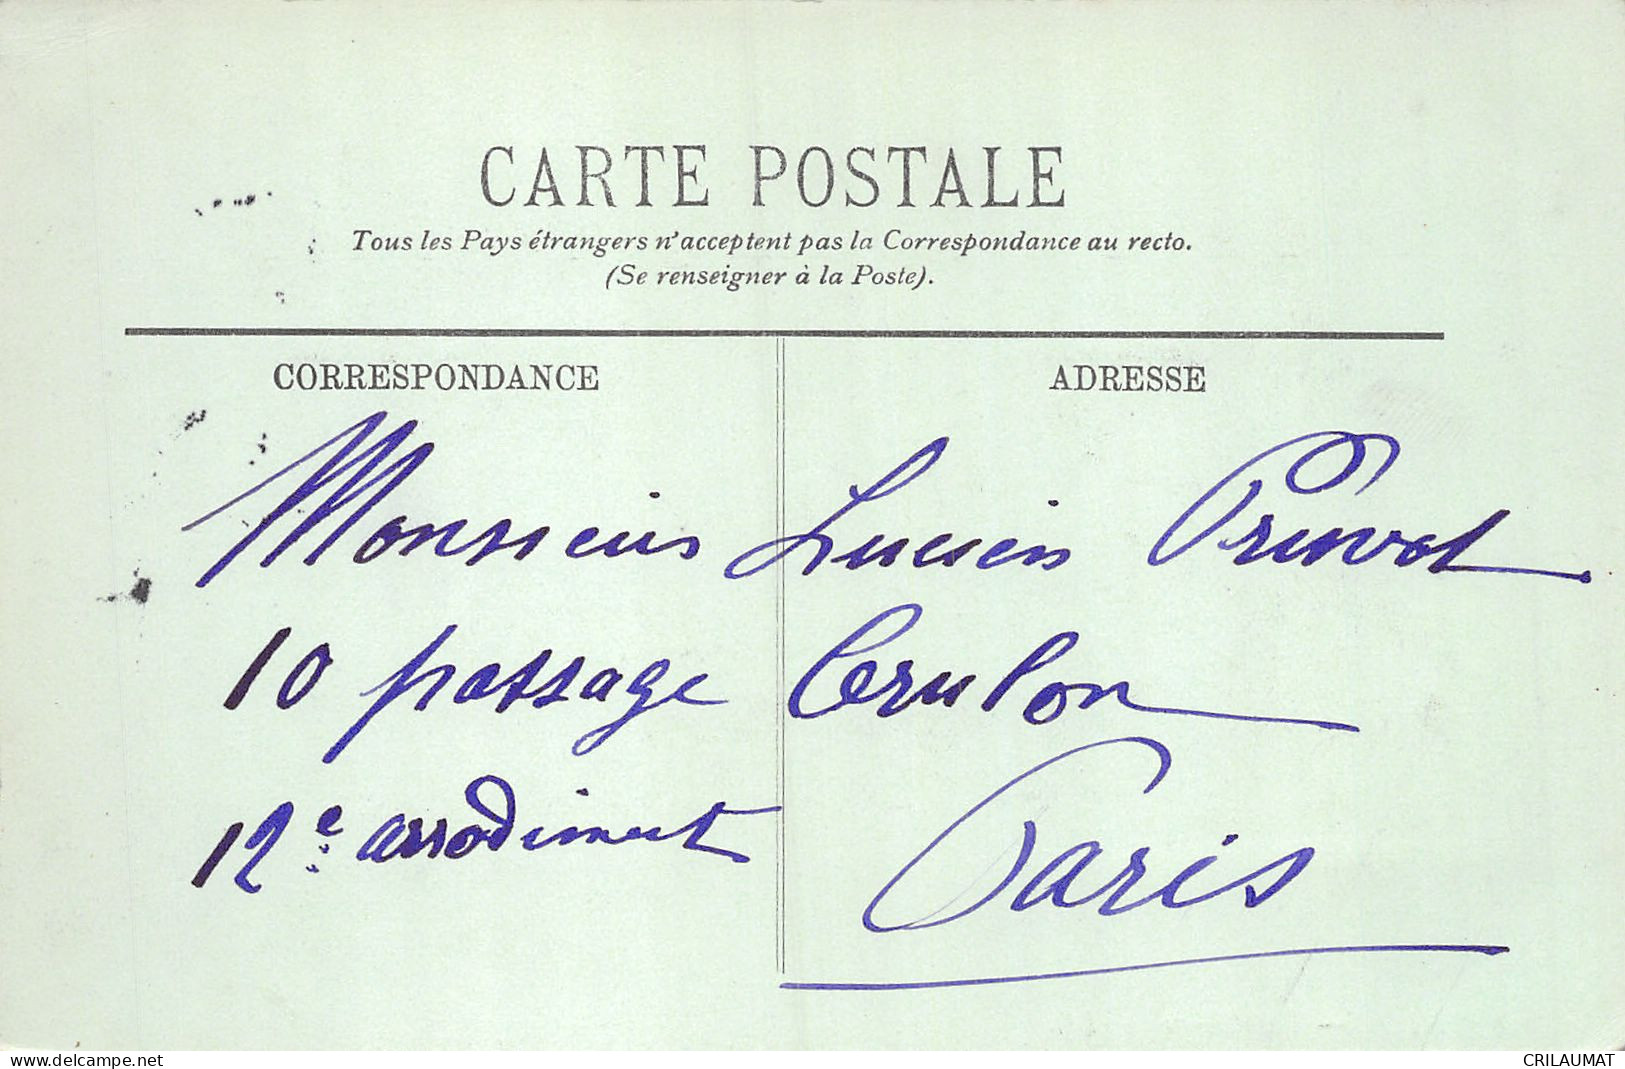 CARTE POSTALE
Tous les Pays étrangers n'acceptent pas la Correspondance au recto.
(Se renseigner à la Poste).
CORRESPONDANCE
ADRESSE
Monsieur Lucien Privat
10 passage
12e arrodiment Paris
www.delcampe.net
CRILAUMAT